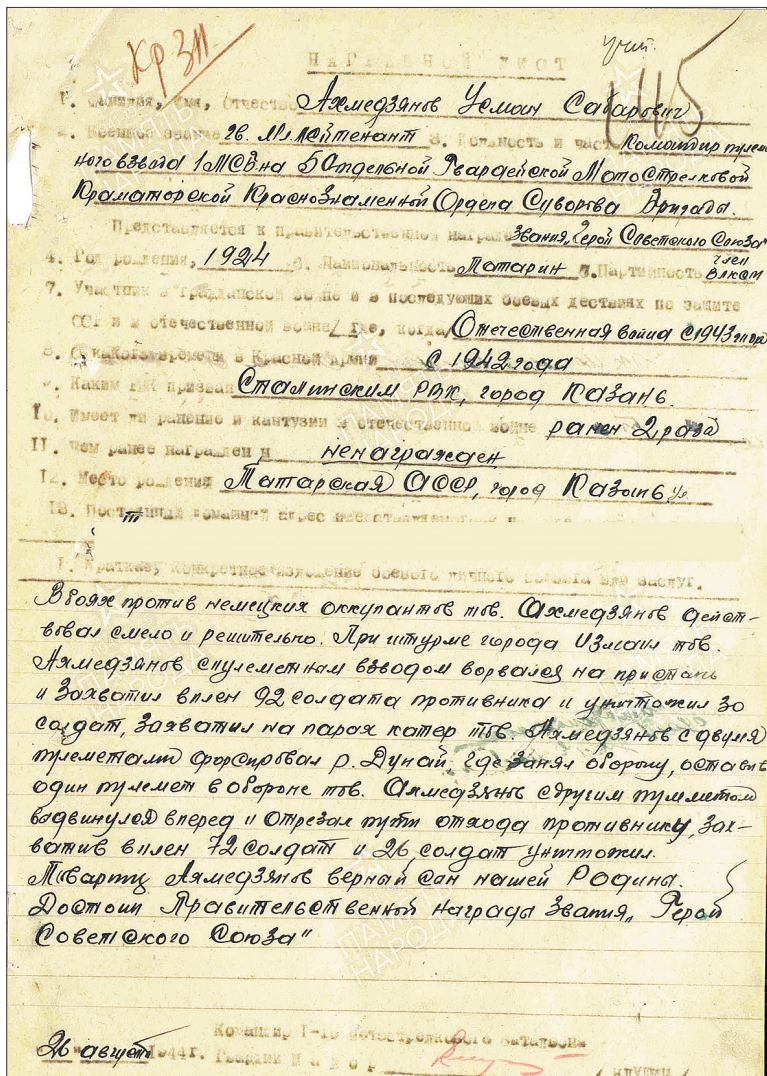 Кр ЗП.
учит.
НАГРАДНОЙ ЛИСТ
1. Фамилия, имя, отчество Ахмедзянов Усман Сабарович
2. Военное звание гв. Мл. лейтенант 3. Должность и часть Командир пулемет-
ного взвода 1 МСБ-на 5 Отдельной Гвардейской Мотострелковой
Краматорской Краснознаменной Ордена Суворова Бригады.
Представляется к правительственной награде Звания „Герой Советского Союза"
4. Год рождения, 1924 5. Национальность Татарин 7. Партийность член ВЛКСМ
7. Участник в гражданской войне и в последующих боевых дествиях по защите
ССР и в отечественной войне/ где, когда/ Отечественная война с 1943 года
8. С какого времени в Красной армии с 1942 года
9. Каким РВК призван Сталинским РВК, город Казань.
10. Имеет ли ранение и кантузии в отечественной войне ранен 2 раза
11. Чем ранее награжден ненагражден
12. Место рождения Татарская АССР, город Казань
13. Постоянный домашний адрес представляемого
1. Краткое, конкретное изложение боевого личного подвига или заслуг.
В боях против немецких оккупантов тов. Ахмедзянов дейст-
вовал смело и решительно. При штурме города Измаил тов.
Ахмедзянов с пулеметным взводом ворвался на пристань
и захватил в плен 92 солдата противника и уничтожил 30
солдат, захватил на парах катер тов. Ахмедзянов с двумя
пулеметами форсировал р. Дунай, где занял оборону, оставив
один пулемет в обороне тов. Ахмедзянов с другим пулеметом
выдвинулся вперед и отрезал пути отхода противнику, зах-
ватив в плен 72 солдат и 26 солдат унчтожил.
Товарищ Ахмедзянов верный сын нашей Родины.
Достоин Правительственной награды Звания „Герой
Советского Союза"
Командир 1-го мотострелкового батальона
26 август 1944 г. Гвардии Майор